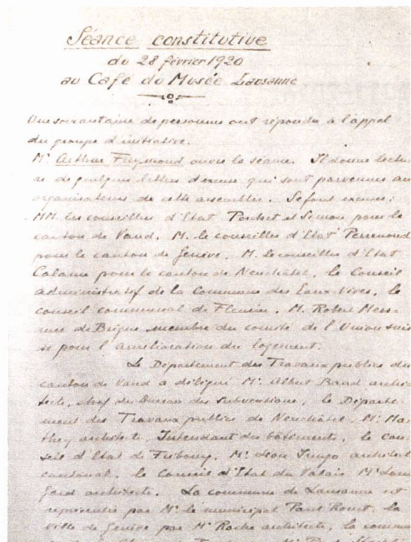 Séance constitutive
du 28 février 1920
au Café du Musée Lausanne
Une soixantaine de personnes ont répondu à l'appel
du groupe d'initiative.
Mr Arthur Freymond ouvre la séance. Il donne lectu
re de quelques lettres d'excuses qui sont parvenues aux
organisateurs de cette assemblée. Se font excuser:
MM. les conseillers d'Etat Porchet et Simon pour le
canton de Vaud, M. le conseiller d'Etat Perrenoud
pour le canton de Genève, M. le conseiller d'Etat
Calame pour le canton de Neuchâtel, le Conseil
administratif de la Commune des Eaux-Vives, le
conseil communal de Fleurier, M. Robert
de Brigue membre du comité de l'Union suis
se pour l'amélioration du logement.
Le Département des Travaux publics du
canton de Vaud a délégué Mr Albert archi
tecte, chef du Bureau des subventions, le Départe
ment des Travaux publics de Neuchâtel, Mr
architecte, Intendant des bâtiments, le con
seil d'Etat de Fribourg, Mr Léon architecte
cantonal, le Conseil d'Etat du Valais Mr
architecte. La commune de Lausanne est
représentée par Mr le municipal Paul, la
ville de Genève par Mr Roche architecte, la commu